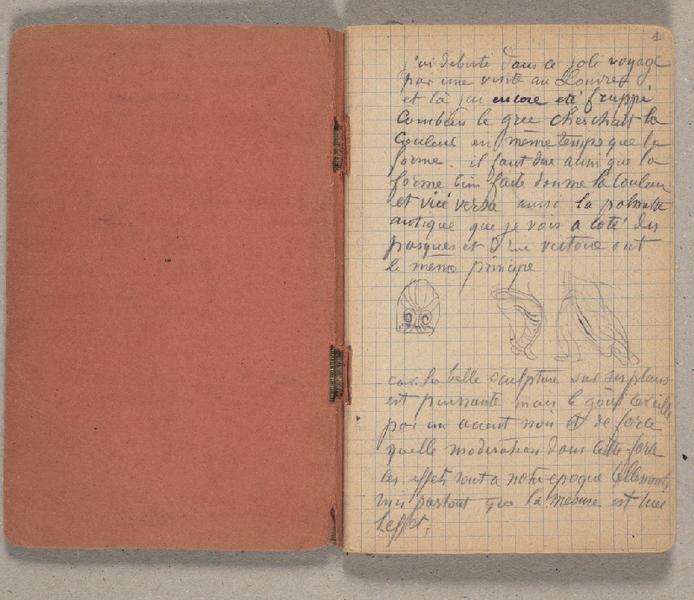 1
j'ai debuté dans ce joli voyage
par une visite au Louvre
et là j'ai encore été frappé
Combien le grec cherchait la
Couleur en même temps que la
forme. il faut dire aussi que la
forme bien faite donne la couleur
et vice versa aussi la palmette
antique que je vois a coté des
parques et d'une victoire ont
le meme principe
car la belle sculpture sur ses plans
est puissante mais le gout
par un accent noir et de force
quelle moderation dans cette force
les effets sont a notre epoque tellement
mis partout que la mesure est